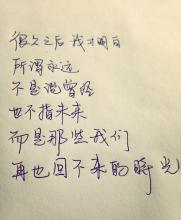 很久之后我才明白
所谓永远
不是说曾经
也不指未来
而是那些我们
再也回不来的时光